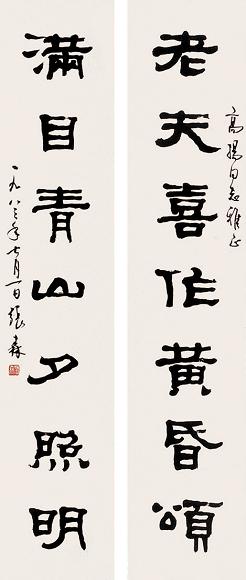 高陽同志雅正
老夫喜作黄昏頌
滿目青山夕照明
一九八三年七月一日張森